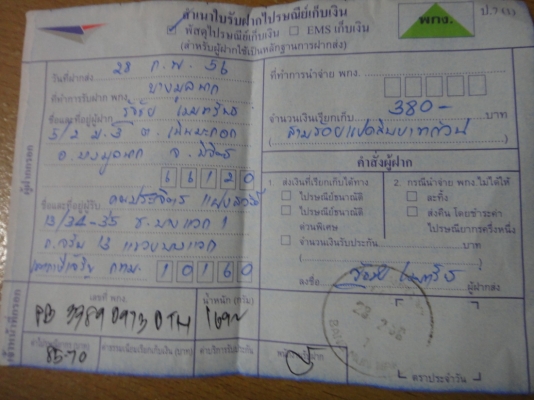 สำเนาใบรับฝากไปรษณีย์เก็บเงิน
พัสดุไปรษณีย์เก็บเงิน EMS เก็บเงิน
(สำหรับผู้ฝากใช้เป็นหลักฐานการฝากส่ง)
พกง.
วันที่ฝากส่ง 28 ก.พ. 56
ที่ทำการรับฝาก พกง. บางมูลนาก
ชื่อและที่อยู่ผู้ฝาก
5/2 ม.5 ต.
อ.บางมูลนาก จ.พิจิตร
66120
ชื่อและที่อยู่ผู้รับ
13/34-35 ซ.บางแวก 1
ถ.จรัญ 13 แขวงบางแวก
กทม. 10160
ผู้ฝากกรอก
ที่ทำการนำจ่าย พกง.
จำนวนเงินเรียกเก็บ 380- บาท
(สามร้อยแปดสิบบาทถ้วน)
คำสั่งผู้ฝาก
1. ส่งเงินที่เรียกเก็บได้ทาง
ไปรษณีย์ธนาณัติ
ไปรษณีย์ธนาณัติ
ด่วนพิเศษ
2. กรณีนำจ่าย พกง.ไม่ได้ให้
ละทิ้ง
ส่งคืน โดยชำระค่า
ไปรษณียากรครึ่งหนึ่ง
จำนวนเงินรับประกัน บาท
ลงชื่อ ผู้ฝากส่ง
เจ้าหน้าที่กรอก
เลขที่ พกง. น้ำหนัก (กรัม)
ค่าบริการรับประกัน
85-70
ตราประจำวัน